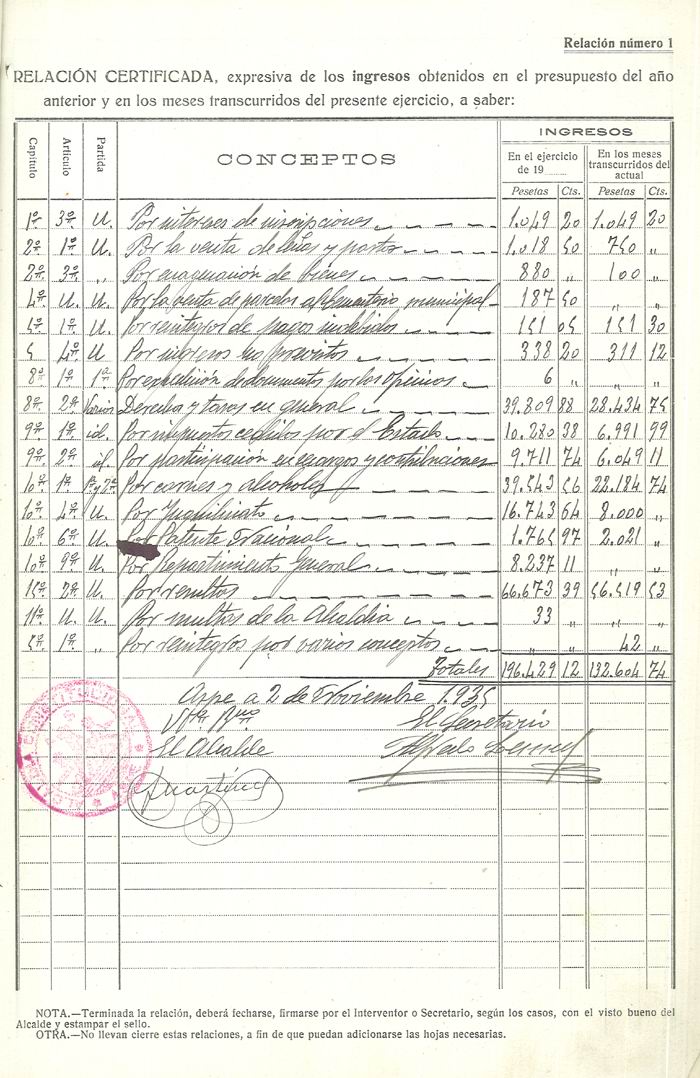 Relación número 1
RELACIÓN CERTIFICADA, expresiva de los ingresos obtenidos en el presupuesto del año
anterior y en los meses transcurridos del presente ejercicio, a saber:
Capítulo Artículo Partida CONCEPTOS INGRESOS
En el ejercicio de 19 En los meses transcurridos del actual
Pesetas Cts. Pesetas Cts.
1º 3º U. Por intereses de inscripciones 1.049 20 1.049 20
2º 1º U. Por la venta de leñas y pastos 1.018 50 750 „
2º 3º „ Por enagenación de bienes 880 „ 100 „
4º U. U. Por la venta de parcelas al cementerio municipal 187 50 „ „
5º 1º U. Por reintegros de pagos indebidos 151 05 151 30
5 4º U Por ingresos no previstos 338 20 311 12
8º 1º 1ª Por expedición de documentos por las oficinas 6 „ „ „
8º 2º Varios Derechos y tasas en general 39.809 88 28.434 75
9º 1º id. Por impuestos cedidos por el Estado 10.280 38 6.991 99
9º 2º id. Por participación en recargos y contribuciones 9.711 74 6.049 11
10º 1º 1ª y 2ª Por carnes y alcoholes 39.543 56 22.184 74
10º 4º U. Por Inquilinato 16.743 64 8.000 „
10º 6º U. Por Patente Nacional 1.765 97 2.021 „
10º 9º U. Por Repartimiento General 8.237 11 „ „
15º 2º U. Por resultas 66.673 39 56.519 53
11º U. U. Por multas de la Alcaldia 33 „ „
5º 1º „ Por reintegros por varios conceptos „ „ 42 „
Totales 196.429 12 132.604 74
Aspe a 2 de Noviembre 1.935
Vto Bno El Secretario
El Alcalde Alfredo
NOTA.—Terminada la relación, deberá fecharse, firmarse por el Interventor o Secretario, según los casos, con el visto bueno del
Alcalde y estampar el sello.
OTRA.—No llevan cierre estas relaciones, a fin de que puedan adicionarse las hojas necesarias.